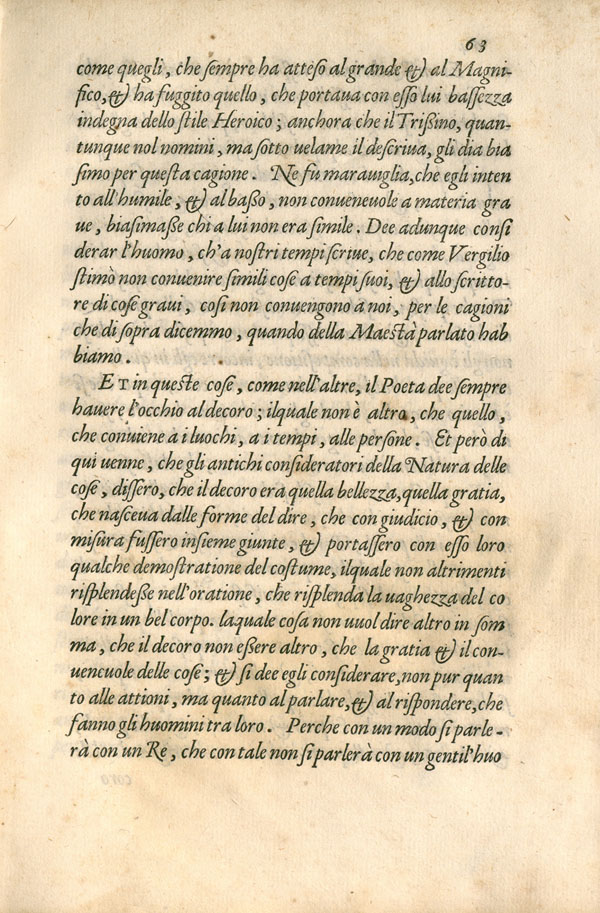 63
come quegli, che ſempre ha atteſo al grande & al Magni-
fico, & ha fuggito quello, che portaua con eſſo lui baſſezza
indegna dello ſtile Heroico; anchora che il Trißino, quan-
tunque nol nomini, ma ſotto uelame il deſcriua, gli dia bia
ſimo per queſta cagione. Ne fu marauiglia, che egli inten
to all'humile, & al baßo, non conueneuole a materia gra
ue, biaſimaße chi a lui non era ſimile. Dee adunque conſi
derar l'huomo, ch'a noſtri tempi ſcriue, che come Vergilio
ſtimò non conuenire ſimili coſe a tempi ſuoi, & allo ſcritto-
re di coſe graui, coſi non conuengono a noi, per le cagioni
che di ſopra dicemmo, quando della Maeſtà parlato hab
biamo.
ET in queſte coſe, come nell'altre, il Poeta dee ſempre
hauere l'occhio al decoro; ilquale non è altro, che quello,
che conuiene a i luochi, a i tempi, alle perſone. Et però di
qui uenne, che gli antichi conſideratori della Natura delle
coſe, diſſero, che il decoro era quella bellezza, quella gratia,
che naſceua dalle forme del dire, che con giudicio, & con
miſura fuſſero inſieme giunte, & portaſſero con eſſo loro
qualche demoſtratione del coſtume, ilquale non altrimenti
riſplendeße nell'oratione, che riſplenda la uaghezza del co
lore in un bel corpo. laquale coſa non uuol dire altro in ſom
ma, che il decoro non eßere altro, che la gratia & il con-
uencuole delle coſe; & ſi dee egli conſiderare, non pur quan
to alle attioni, ma quanto al parlare, & al riſpondere, che
fanno gli huomini tra loro. Perche con un modo ſi parle-
rà con un Re, che con tale non ſi parlerà con un gentil'huo